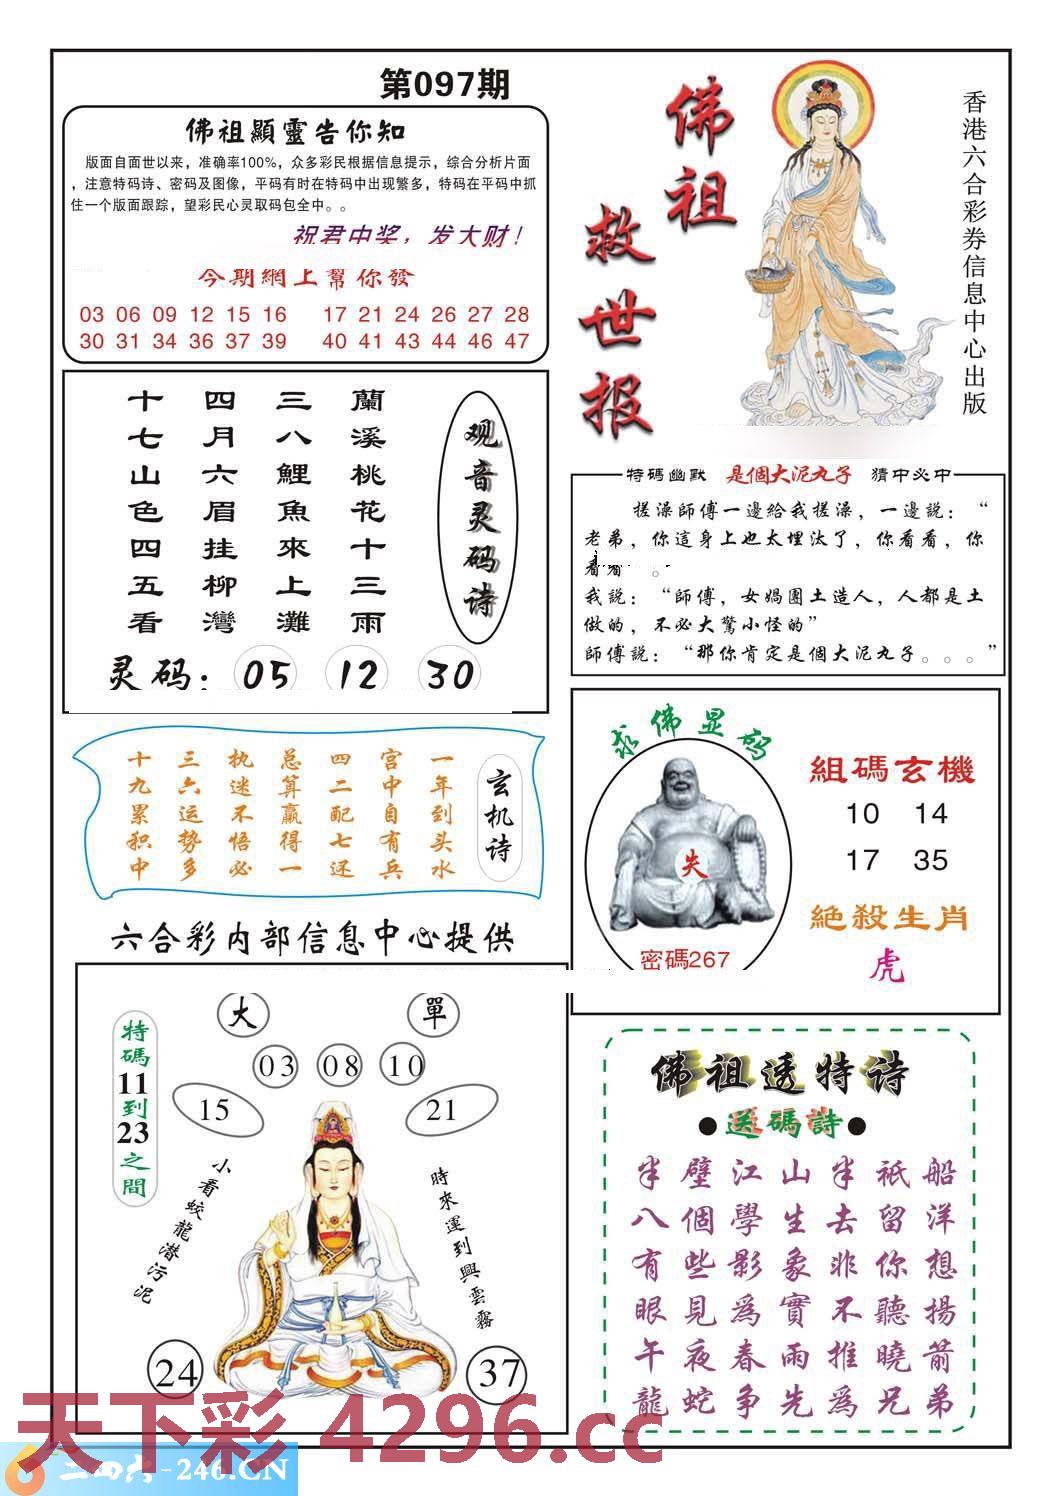 第097期
佛祖顯靈告你知
版面自面世以来，准确率100%，众多彩民根据信息提示，综合分析片面
，注意特码诗、密码及图像，平码有时在特码中出现繁多，特码在平码中抓
住一个版面跟踪，望彩民心灵取码包全中。。
祝君中奖，发大财！
今期網上幫你發
03 06 09 12 15 16 17 21 24 26 27 28
30 31 34 36 37 39 40 41 43 44 46 47
佛祖
救世报
香港六合彩券信息中心出版
观音灵码诗
蘭溪桃花十三雨
三八鯉魚來上灘
四月六眉挂柳灣
十七山色四五看
灵码：05 12 30
特碼幽默 是個大泥丸子 猜中必中
搓澡師傅一邊給我搓澡，一邊説：“
老弟，你這身上也太埋汰了，你看看，你
看看 。
我説：“師傅，女媧團土造人，人都是土
做的，不必大驚小怪的”
師傅説：“那你肯定是個大泥丸子。。。”
玄机诗
一年到头水
宫中自有兵
四二配七还
总算赢得一
执迷不悟必
三六运势多
十九累积中
求佛显码
失
密碼267
組碼玄機
10 14
17 35
絶殺生肖
虎
六合彩内部信息中心提供
大 單
03 08 10
15 21
特碼11到23之間
小看蛟龍潜污泥
時來運到興雲霧
24 37
佛祖透特诗
●送碼詩●
半壁江山半祇船
八個學生去留洋
有些影象非你想
眼見爲實不聽揚
午夜春雨推曉箭
龍蛇争先爲兄弟
天下彩 4296.cc
二四六-246.CN